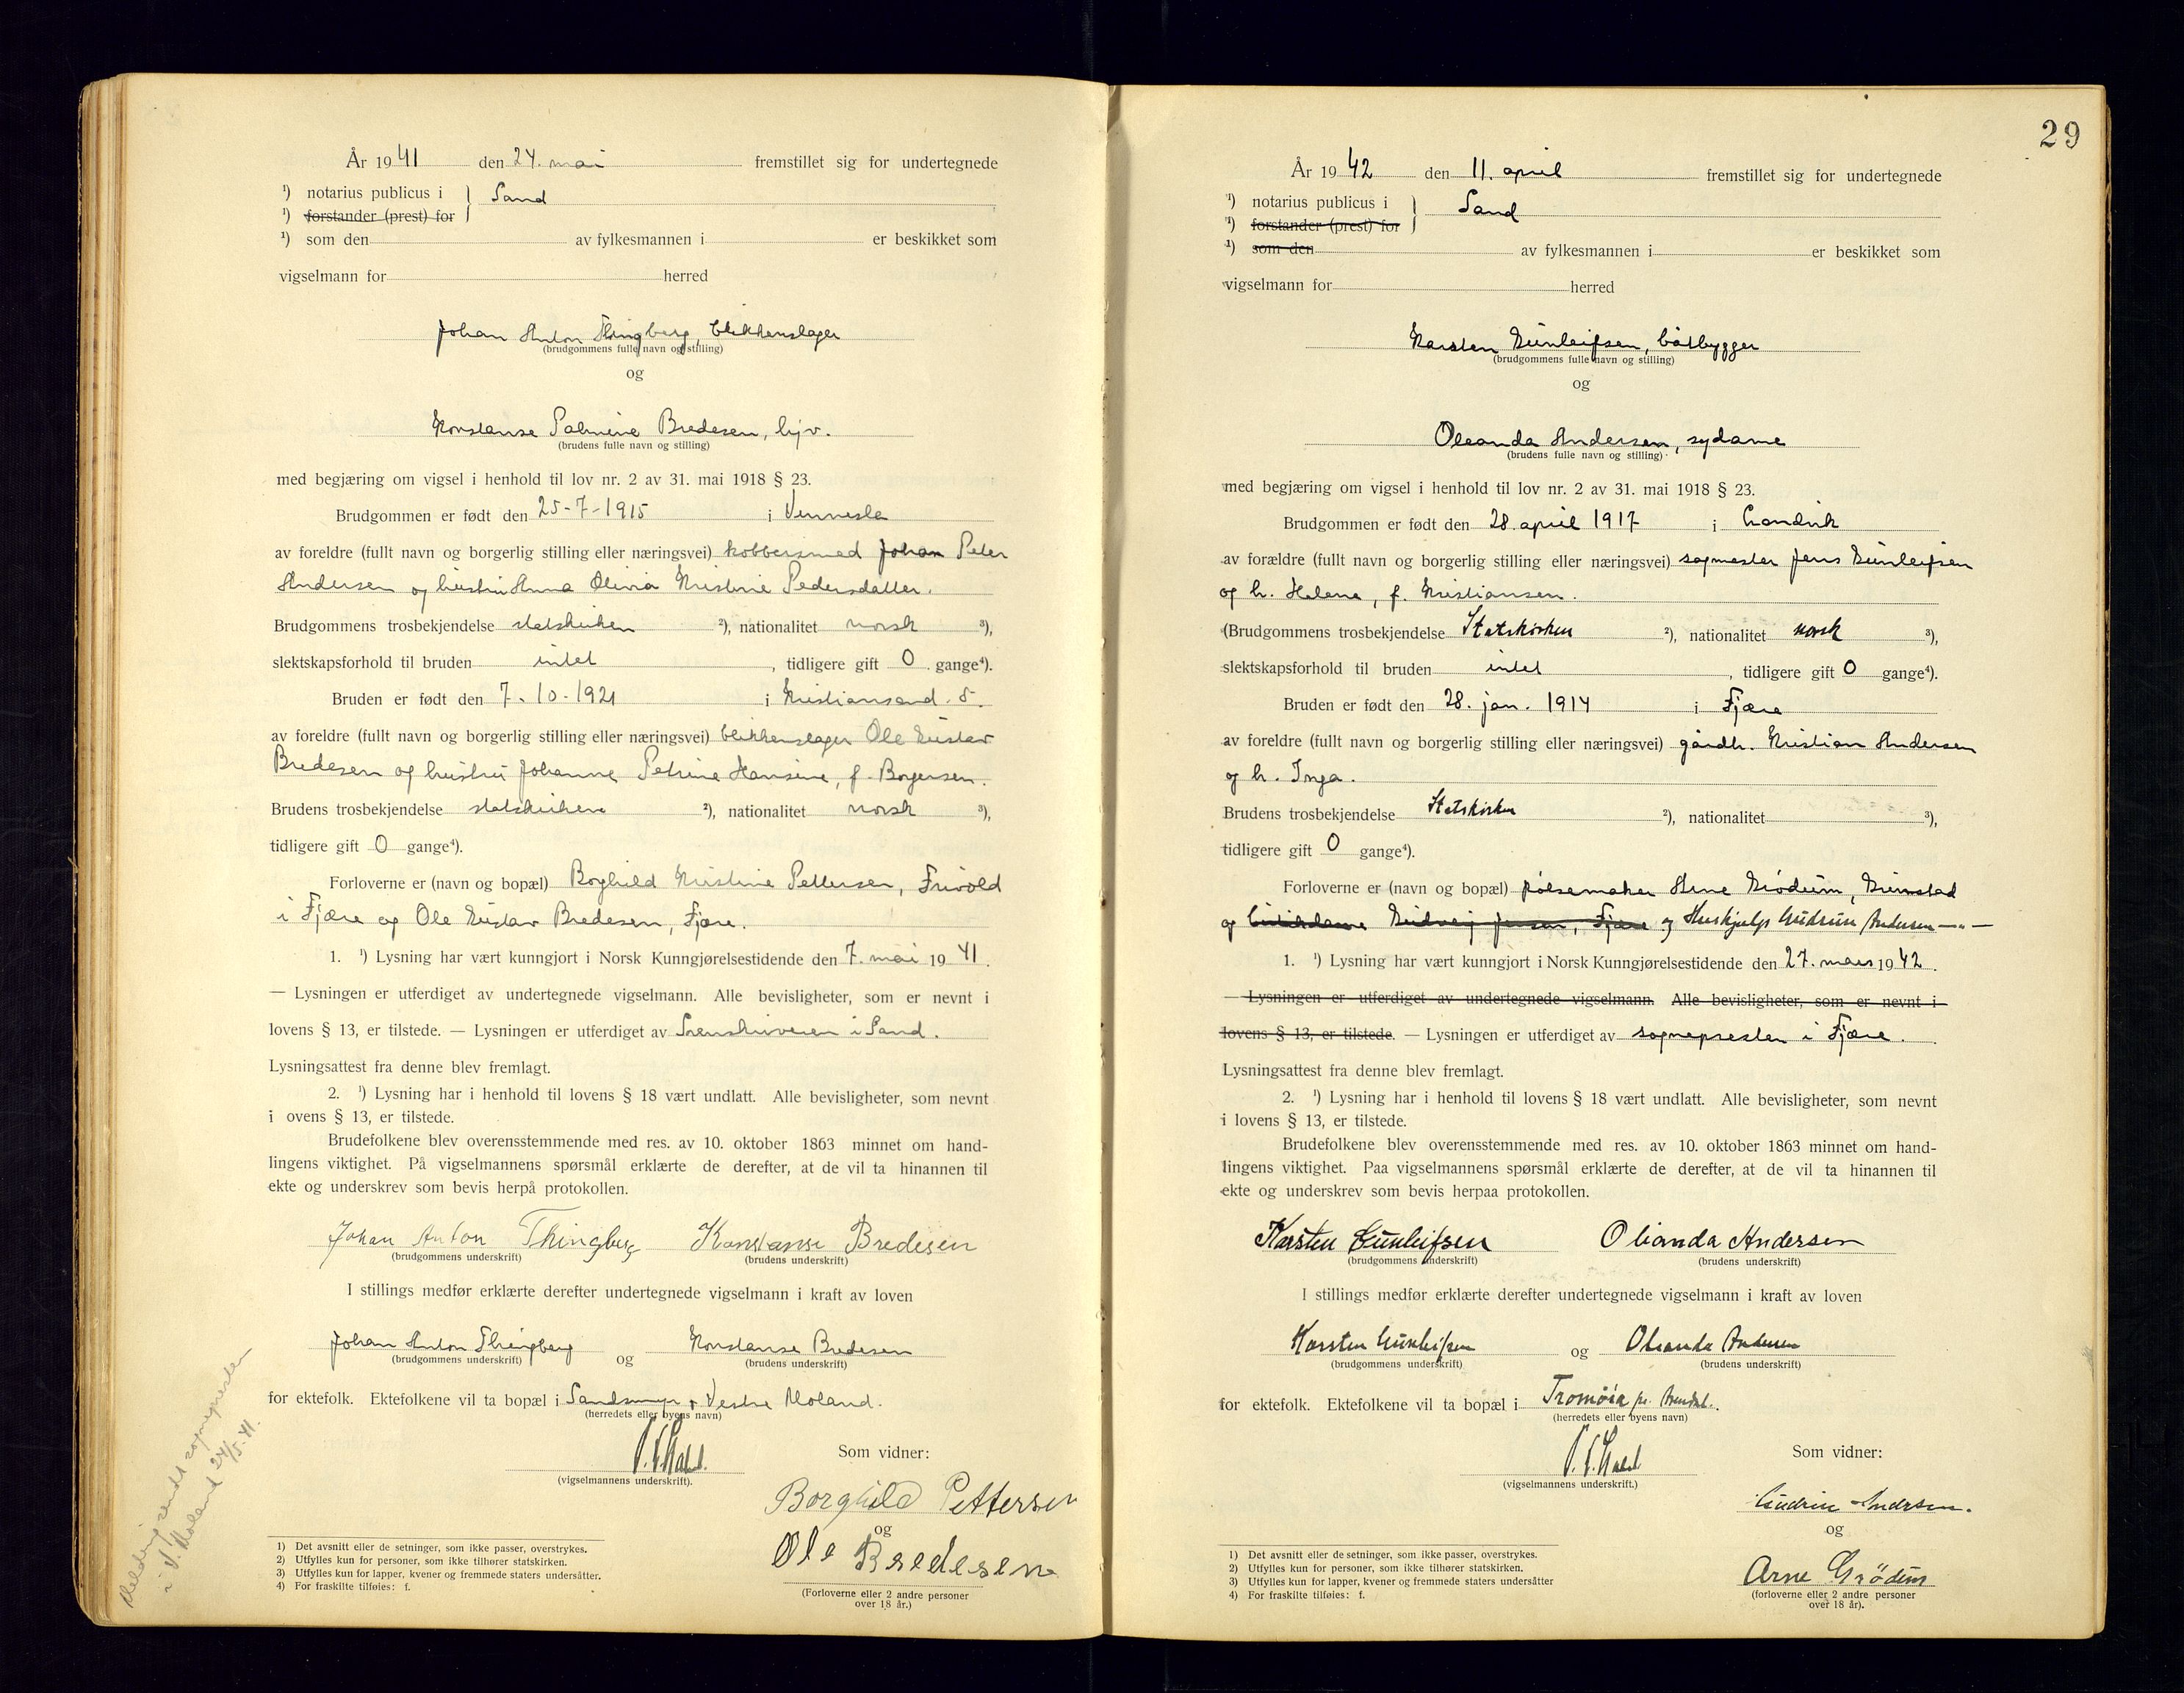 År 1941 den 24. mai fremstillet sig for undertegnede
¹) notarius publicus i } Sand
¹) forstander (prest) for
¹) som den av fylkesmannen i er beskikket som
vigselmann for herred
Johan Anton Thingberg, blikkenslager
(brudgommens fulle navn og stilling)
og
Konstanse Palmine Bredesen, hjv.
(brudens fulle navn og stilling)
med begjæring om vigsel i henhold til lov nr. 2 av 31. mai 1918 § 23.
Brudgommen er født den 25-7-1915 i Vennesla
av foreldre (fullt navn og borgerlig stilling eller næringsvei) kobbersmed Johan Peter
Andersen og hustru Anna Olivia Kristine Pedersdatter.
Brudgommens trosbekjendelse statskirken ²), nationalitet norsk ³),
slektskapsforhold til bruden intet, tidligere gift 0 gange⁴).
Bruden er født den 7-10-1921 i Kristiansand. S.
av foreldre (fullt navn og borgerlig stilling eller næringsvei) blikkenslager Ole Gustav
Bredesen og hustru Johanne Petrine Hansine, f. Borgersen.
Brudens trosbekjendelse statskirken ²), nationalitet norsk ³),
tidligere gift 0 gange⁴).
Forloverne er (navn og bopæl) Borghild Kristine Pettersen, Frivold
i Fjære og Ole Gustav Bredesen, Fjære.
1. ¹) Lysning har vært kunngjort i Norsk Kunngjørelsestidende den 7. mai 1941.
— Lysningen er utferdiget av undertegnede vigselmann. Alle bevisligheter, som er nevnt i
lovens § 13, er tilstede. — Lysningen er utferdiget av Sorenskriveren i Sand.
Lysningsattest fra denne blev fremlagt.
2. ¹) Lysning har i henhold til lovens § 18 vært undlatt. Alle bevisligheter, som nevnt
i ovens § 13, er tilstede.
Brudefolkene blev overensstemmende med res. av 10. oktober 1863 minnet om hand-
lingens viktighet. På vigselmannens spørsmål erklærte de derefter, at de vil ta hinannen til
ekte og underskrev som bevis herpå protokollen.
Johan Anton Thingberg Konstanse Bredesen
(brudgommens underskrift) (brudens underskrift)
I stillings medfør erklærte derefter undertegnede vigselmann i kraft av loven
Johan Anton Thingberg og Konstanse Bredesen
(brudgommens underskrift) (brudens underskrift)
for ektefolk. Ektefolkene vil ta bopæl i Sandsmyr, Vestre Moland.
(herredets eller byens navn)
(vigselmannens underskrift).
Som vidner:
Borghild Pettersen
og
Ole Bredesen
(Forloverne eller 2 andre personer
over 18 år.)
Melding sendt sognepresten
i V. Moland 24/5-41.
1) Det avsnitt eller de setninger, som ikke passer, overstrykes.
2) Utfylles kun for personer, som ikke tilhører statskirken.
3) Utfylles kun for lapper, kvener og fremmede staters undersåtter.
4) For fraskilte tilføies: f.
29
År 1942 den 11. april fremstillet sig for undertegnede
¹) notarius publicus i } Sand
¹) forstander (prest) for
¹) som den av fylkesmannen i er beskikket som
vigselmann for herred
Karsten Gunleifsen, båtbygger
(brudgommens fulle navn og stilling)
og
Oleanda Andersen, sydame
(brudens fulle navn og stilling)
med begjæring om vigsel i henhold til lov nr. 2 av 31. mai 1918 § 23.
Brudgommen er født den 28. april 1917 i
av forældre (fullt navn og borgerlig stilling eller næringsvei) sagmester Jens Gunleifsen
og h. Helene, f. Kristiansen.
(Brudgommens trosbekjendelse Statskirken ²), nationalitet norsk ³),
slektskapsforhold til bruden intet, tidligere gift 0 gange⁴).
Bruden er født den 28. jan. 1914 i Fjære
av foreldre (fullt navn og borgerlig stilling eller næringsvei) gårdbr. Kristian Andersen
og h. Inga.
Brudens trosbekjendelse Statskirken ²), nationalitet ³),
tidligere gift 0 gange⁴).
Forloverne er (navn og bopæl) pølsemaker Arne Grødum, Grimstad
og butikdame Gudveig Jensen, Fjære og Hushjelp Gudrun Andersen —"—
1. ¹) Lysning har vært kunngjort i Norsk Kunngjørelsestidende den 27. mars 1942.
— Lysningen er utferdiget av undertegnede vigselmann. Alle bevisligheter, som er nevnt i
lovens § 13, er tilstede. — Lysningen er utferdiget av sognepresten i Fjære.
Lysningsattest fra denne blev fremlagt.
2. ¹) Lysning har i henhold til lovens § 18 vært undlatt. Alle bevisligheter, som nevnt
i lovens § 13, er tilstede.
Brudefolkene blev overensstemmende med res. av 10. oktober 1863 minnet om hand-
lingens viktighet. Paa vigselmannens spørsmål erklærte de derefter, at de vil ta hinannen til
ekte og underskrev som bevis herpaa protokollen.
Karsten Gunleifsen Olianda Andersen
(brudgommens underskrift) (brudens underskrift)
I stillings medfør erklærte derefter undertegnede vigselmann i kraft av loven
Karsten Gunleifsen og Olianda Andersen
(brudgommens underskrift) (brudens underskrift)
for ektefolk. Ektefolkene vil ta bopæl i Tromøia pr. Arendal.
(herredets eller byens navn)
(vigselmannens underskrift.)
Som vidner:
Gudrun Andersen.
og
Arne Grødum
(forloverne eller 2 andre personer
over 18 år).
1) Det avsnitt eller de setninger, som ikke passer, overstrykes.
2) Utfylles kun for personer, som ikke tilhører statskirken.
3) Utfylles kun for lapper, kvener og fremmede staters undersåtter
4) For fraskilte tilføies: f.